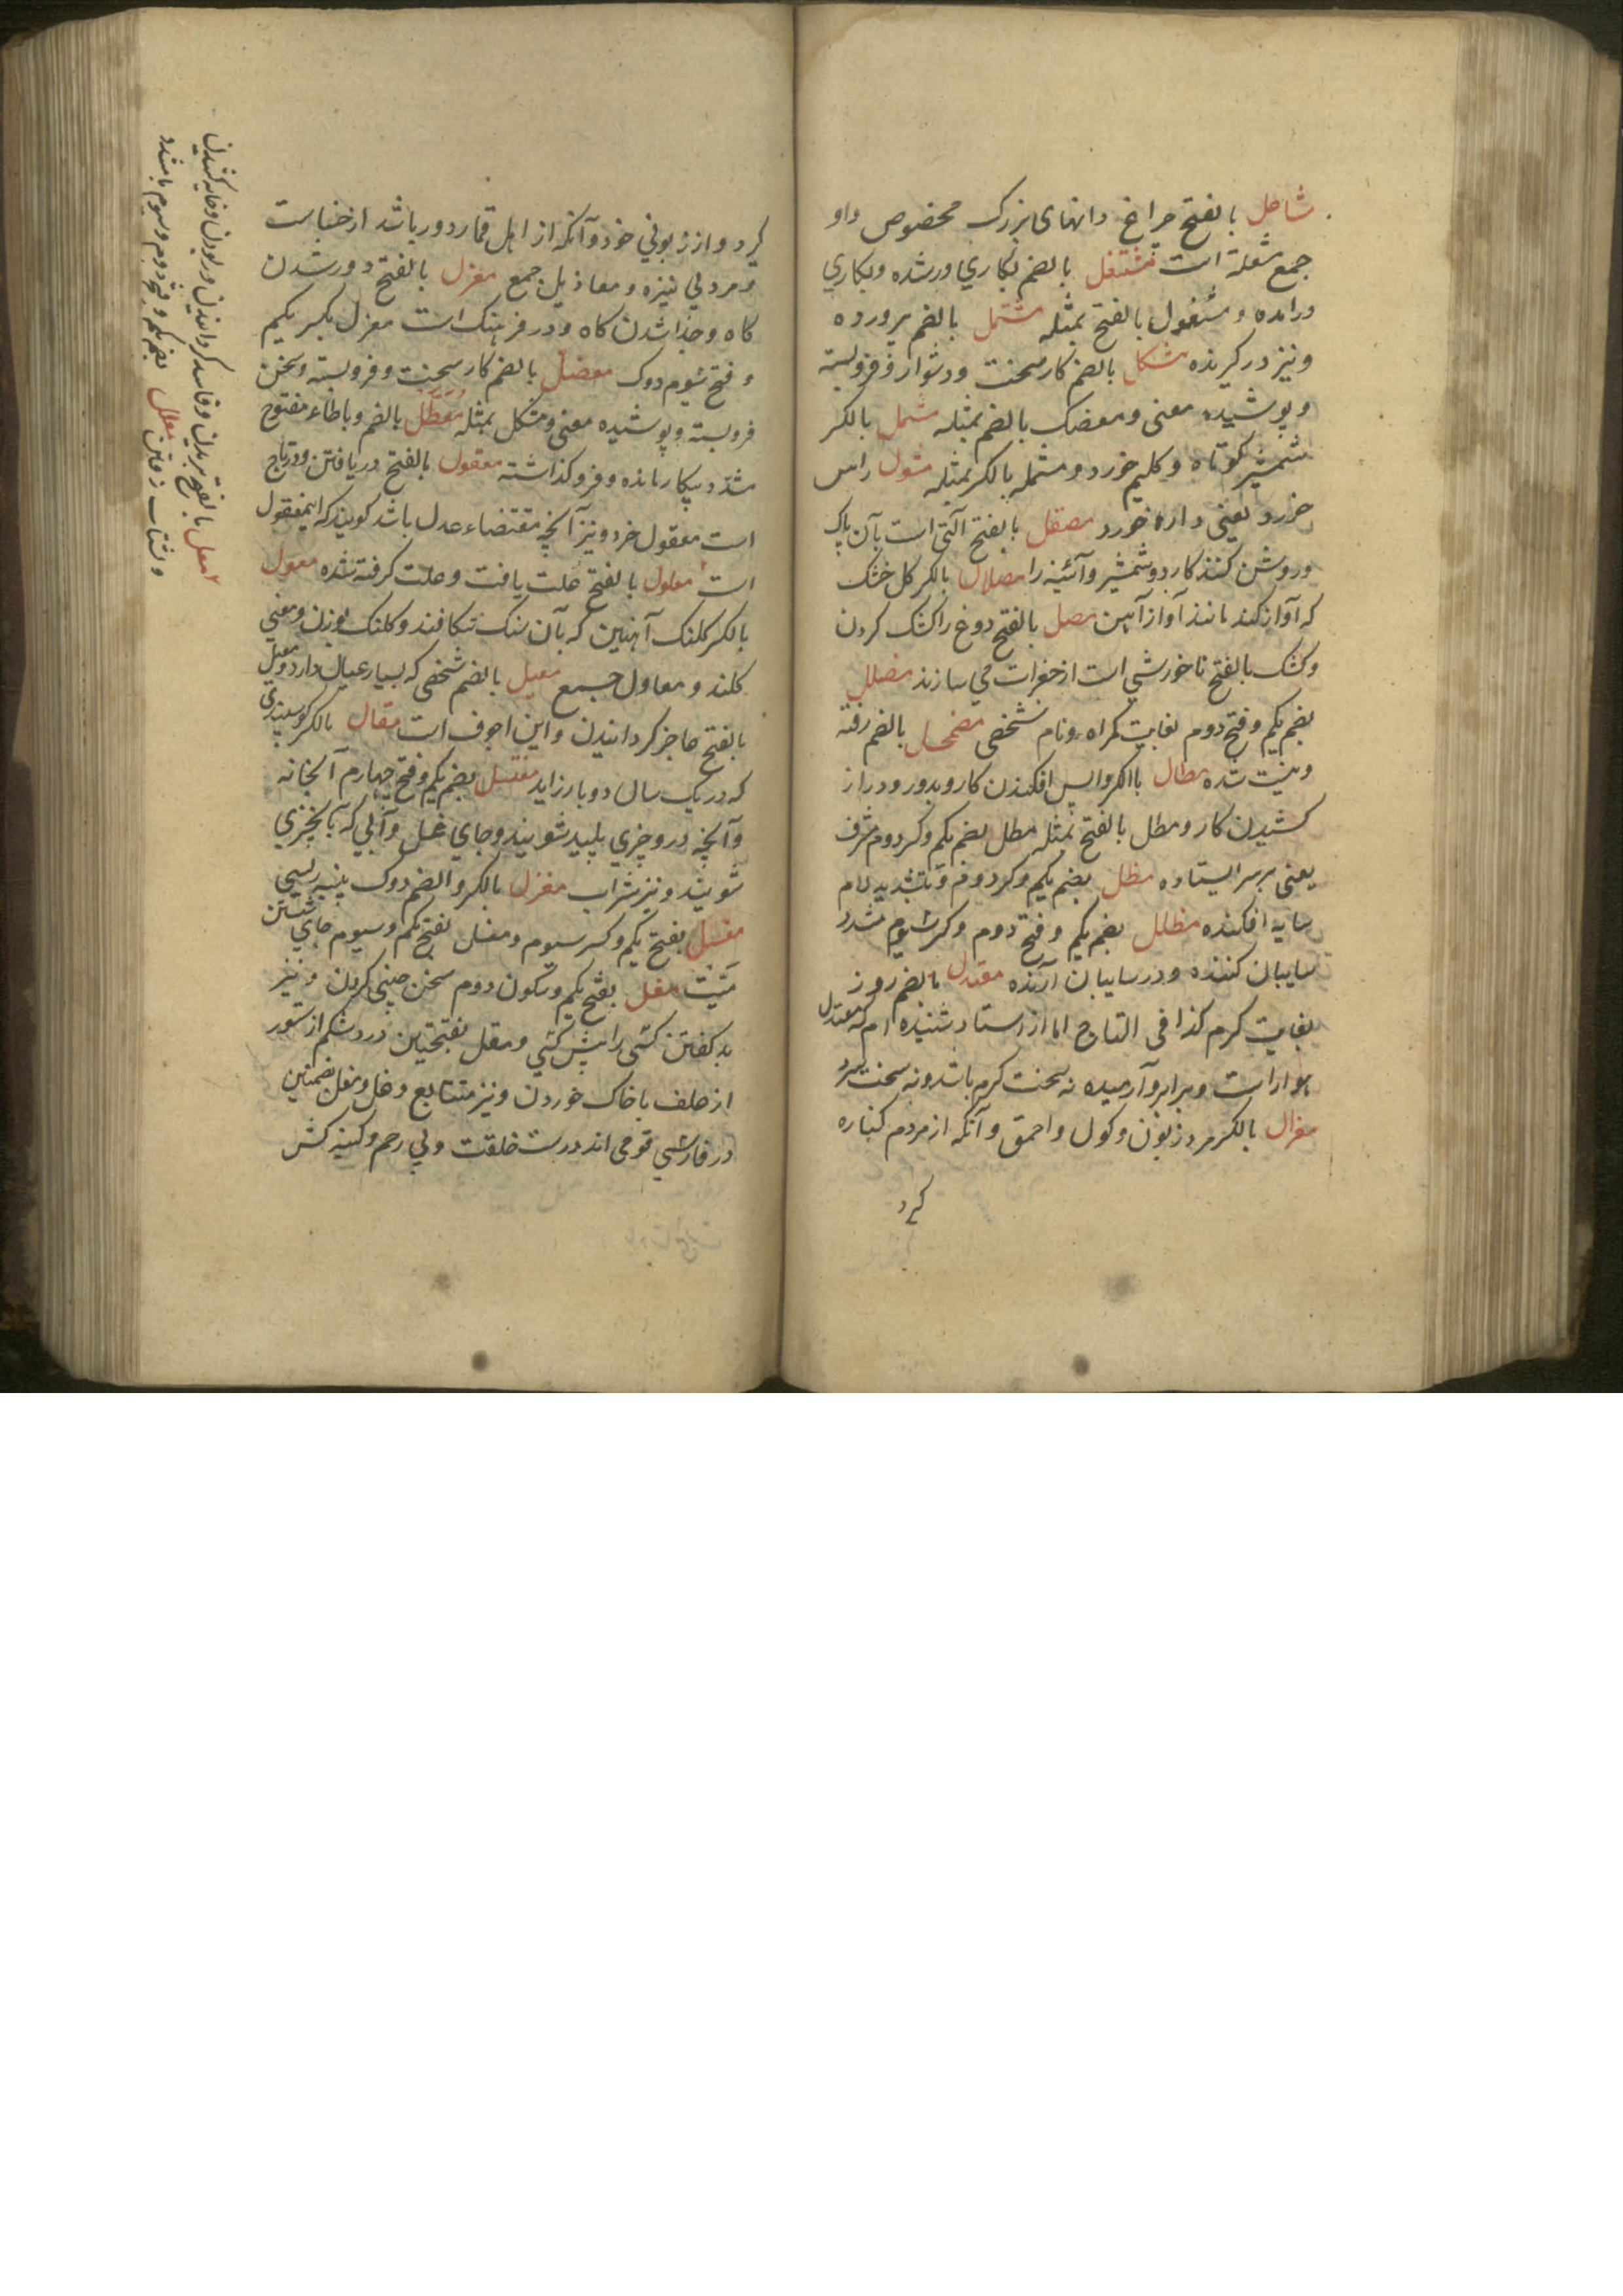 شاعل بالفتح چراغ دانهای بزرگ مخصوص واو
جمع شعلة است مشتغل بالضم بکاری ورشده وبکاری
درامده و مشغول بالفتح بمثله مشتمل بالضم پرورده
ونیز درگیرنده مشکل بالضم کار سخت ودشوار و فروبسته
وپوشیده معنی ومعضک بالضم بمثله مشمل بالکسر
شمشیر کوتاه و کلیم خورد و مشمله بالکسر بمثله مشول راس
خورد یعنی داره خورد مصقل بالفتح آلتی است بآن پاک
وروشن کنند کارد وشمشیر وآئینه را مصلال بالکسر کل خشک
که آواز کند مانند آواز آهن مصل بالفتح دوغ را کشک کردن
وکشک بالفتح ناخورشی است از جغرات می سازند مضلل
بضم یکم وفتح دوم بغایت کمراه ونام شخصی مضمحل بالضم رفته
ونیست شده مطال بالکسر واپس افکندن کار وبدور ودراز
کشیدن کار ومطل بالفتح بمثله مطل بضم یکم وکسر دوم مشرف
یعنی برسر ایستاده مظل بضم یکم وکسر دوم وتشدید لام
سایه افکنده مظلل بضم یکم وفتح دوم وکسر سیوم مشدد
سایبان کننده ودر سایبان آرنده معتدل بالضم روز
بغایت کرم کذا فی التاج اما از استاد شنیده ام که معتدل
هوار است وبرابر وآرمیده نه سخت کرم باشد ونه سخت سرد
معزال بالکسر مرد زبون وکول واحمق وآنکه از مردم کناره
کیرد
کیرد واز زبونی خود وآنکه از اهل قمار دور باشد از خساست
ومرد بی نیزه ومعازیل جمع معزل بالفتح دور شدن
کاه وجدا شدن کاه ودر فرهنک است مغزل بکسر یکم
وفتح سیوم دوک معضل بالضم کار سخت وفروبسته وسخن
فروبسته وپوشیده معنی ومشکل بمثله معطل بالضم وباطاء مفتوح
مشدد بیکار مانده وفروکذاشته معقول بالفتح دریافتن ودر تاج
است معقول خرد ونیز آنچه مقتضاء عدل باشد کویند که اینمعقول
است معلول بالفتح علت یافت وعلت کرفته شده معول
بالکسر کلنک آهنین که بآن سنک شکافند وکلنک بوزن ومعنی
کلند ومعاول جمع معیل بالضم شخصی که بسیار عیال دارد ومعیل
بالفتح عاجز کردانیدن واین اجوف است مغال بالکسر کوسپندی
که در یک سال دوبار زاید مغتسل بضم یکم وفتح چهارم آبخانه
وآنچه درو چیزی پلید شویند وجای غسل وآبی که بآن چیزی
شویند ونیز شراب مغزل بالکسر والضم دوک پنبه ریسی
مغسل بفتح یکم وکسر سیوم ومغسل بفتح یکم وسیوم جای شستن
میت مغل بفتح یکم وسکون دوم سخن چینی کردن ونیز
بد کفتن کسی را پیش کسی ومغل بفتحتین درد شکم از ستور
از علف با خاک خوردن ونیز متتابع وخل ومغل بضمتین
در فارسی قومی اند درست خلقت وبی رحم وکینه کش
معل بالفتح بریدن وفاسد کردانیدن وربودن وخایه کشیدن
وشتاب رفتن معلل بضم یکم وفتح دوم وسیوم بامشدد